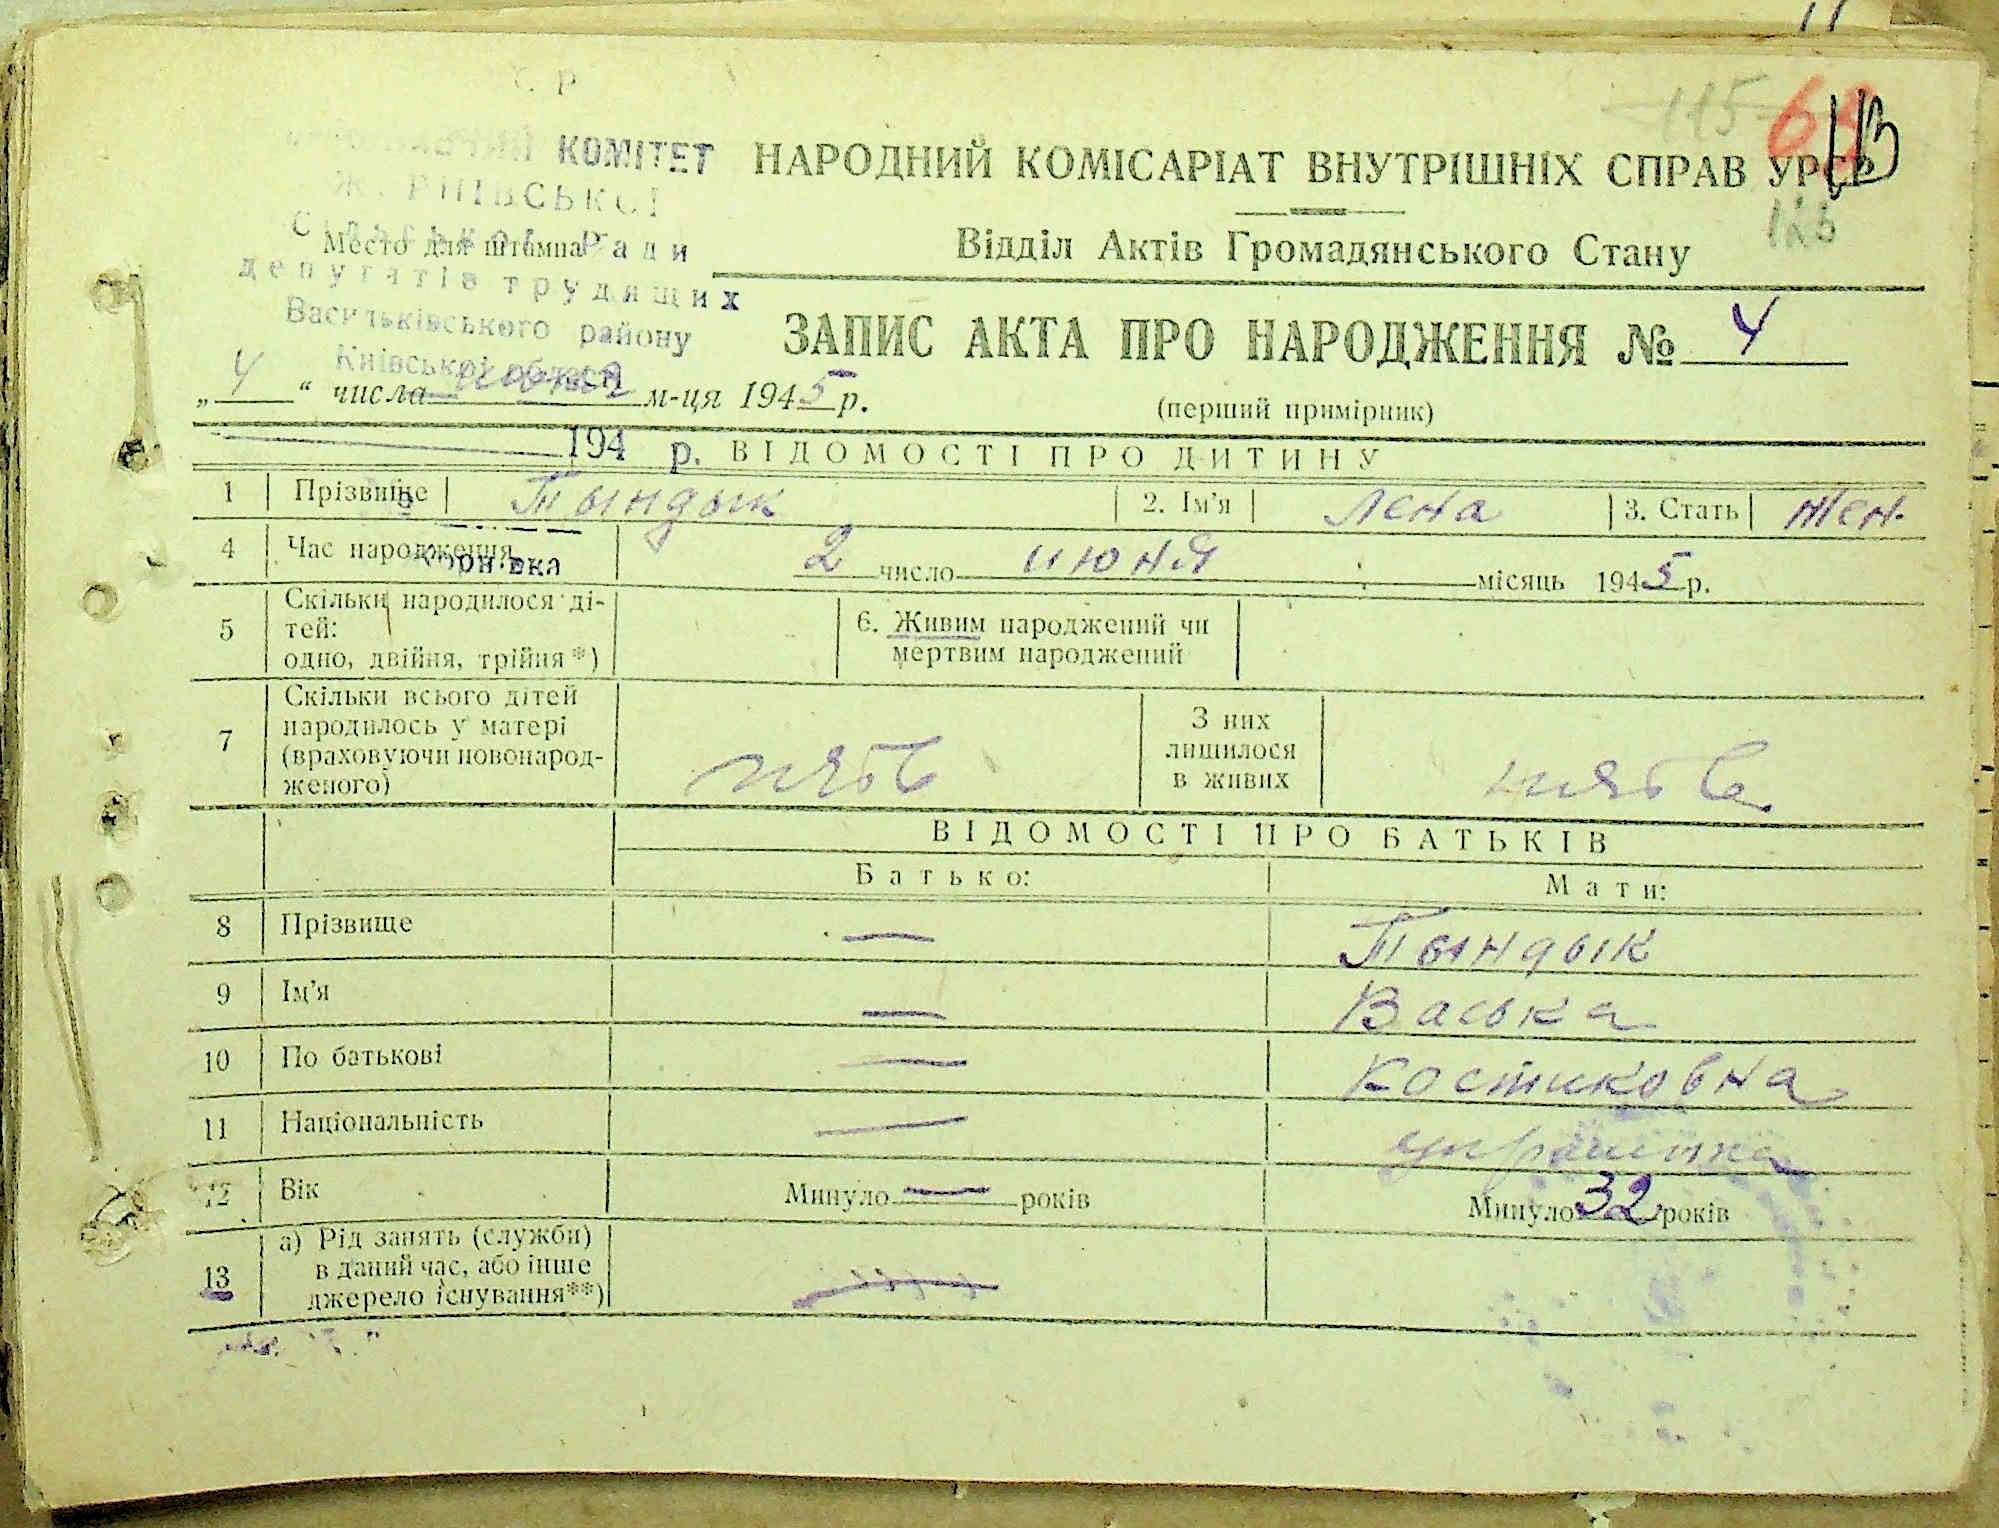 115 68 113
КОМІТЕТ НАРОДНИЙ КОМІСАРІАТ ВНУТРІШНІХ СПРАВ УРСР
Место для штампа Ради Відділ Актів Громадянського Стану
депутатів трудящих
Васильківського району
Київської області
ЗАПИС АКТА ПРО НАРОДЖЕННЯ № 4
„ 4 “ числа июня м-ця 1945 р. (перший примірник)
194 р. ВІДОМОСТІ ПРО ДИТИНУ
1 Прізвище Тындык 2. Ім'я Лена 3. Стать жен.
4 Час народження 2 число июня місяць 1945 р.
5 Скільки народилося ді-
тей:
одно, двійня, трійня*)
6. Живим народжений чи
мертвим народжений
7 Скільки всього дітей
народилось у матері
(враховуючи новонарод-
женого)
пять
З них
лишилося
в живих
пять
ВІДОМОСТІ ПРО БАТЬКІВ
Батько: Мати:
8 Прізвище — Тындык
9 Ім'я — Васька
10 По батькові — Костиковна
11 Національність — украинка
12 Вік Минуло — років Минуло 32 років
13 а) Рід занять (служби)
в даний час, або інше
джерело існування**)